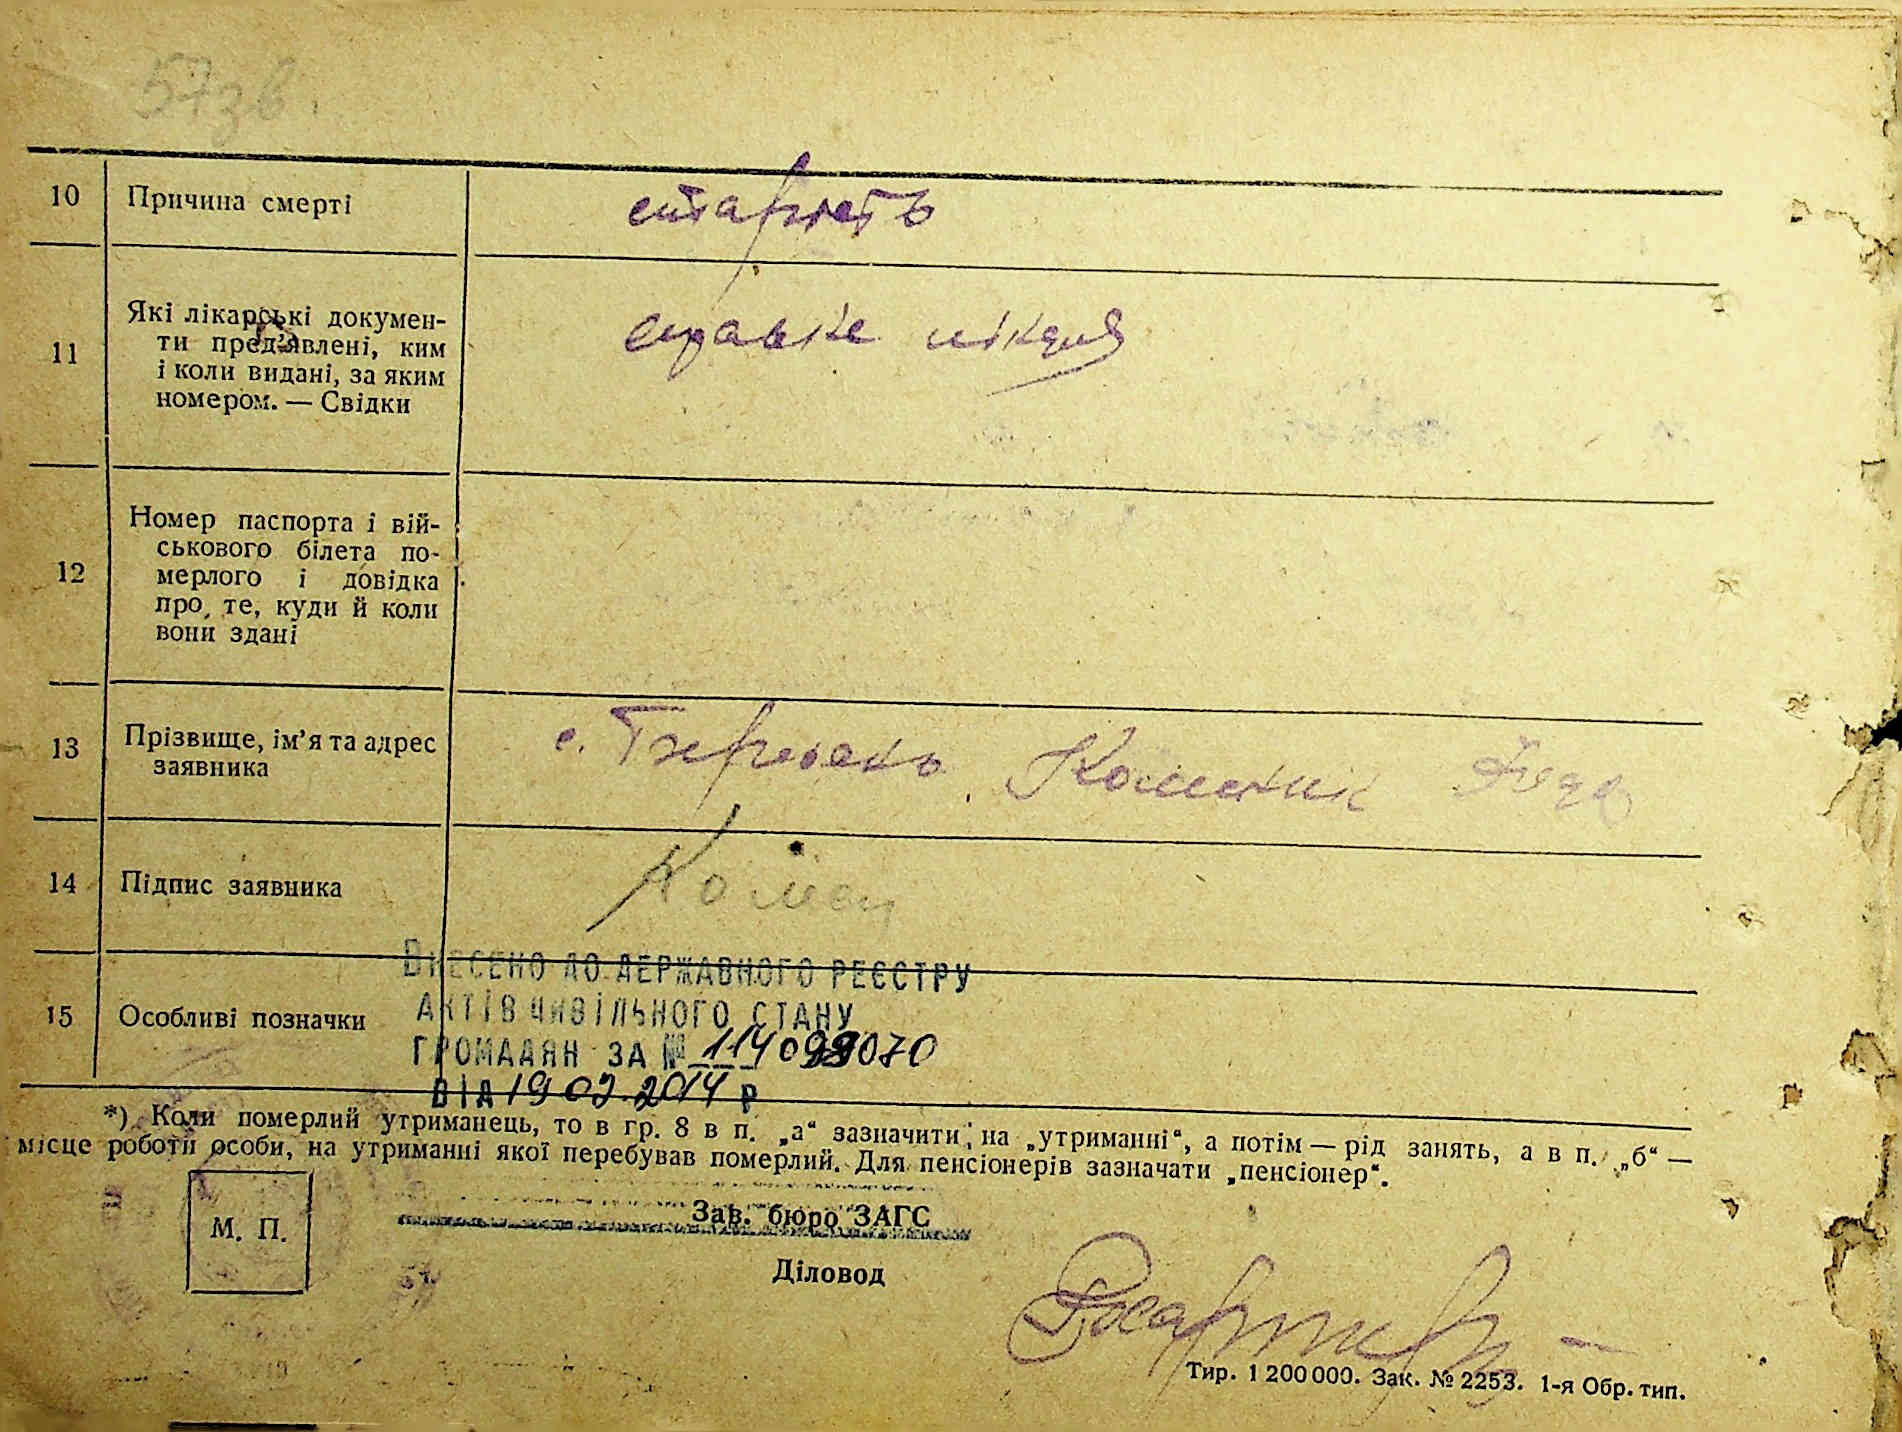 57зв.
10 Причина смерті старість
11 Які лікарські докумен-
ти пред'явлені, ким
і коли видані, за яким
номером. — Свідки
справка лікаря
12 Номер паспорта і вій-
ськового білета по-
мерлого і довідка
про те, куди й коли
вони здані
13 Прізвище, ім'я та адрес
заявника
с.
14 Підпис заявника
ВНЕСЕНО ДО ДЕРЖАВНОГО РЕЄСТРУ
15 Особливі позначки
АКТІВ ЦИВІЛЬНОГО СТАНУ
ГРОМАДЯН ЗА №
ВІД 2014 Р
*) Коли померлий утриманець, то в гр. 8 в п. „а“ зазначити: на „утриманні“, а потім — рід занять, а в п. „б“ —
місце роботи особи, на утриманні якої перебував померлий. Для пенсіонерів зазначати „пенсіонер“.
М. П.
Зав. бюро ЗАГС
Діловод
Тир. 1 200 000. Зак. № 2253. 1-я Обр. тип.